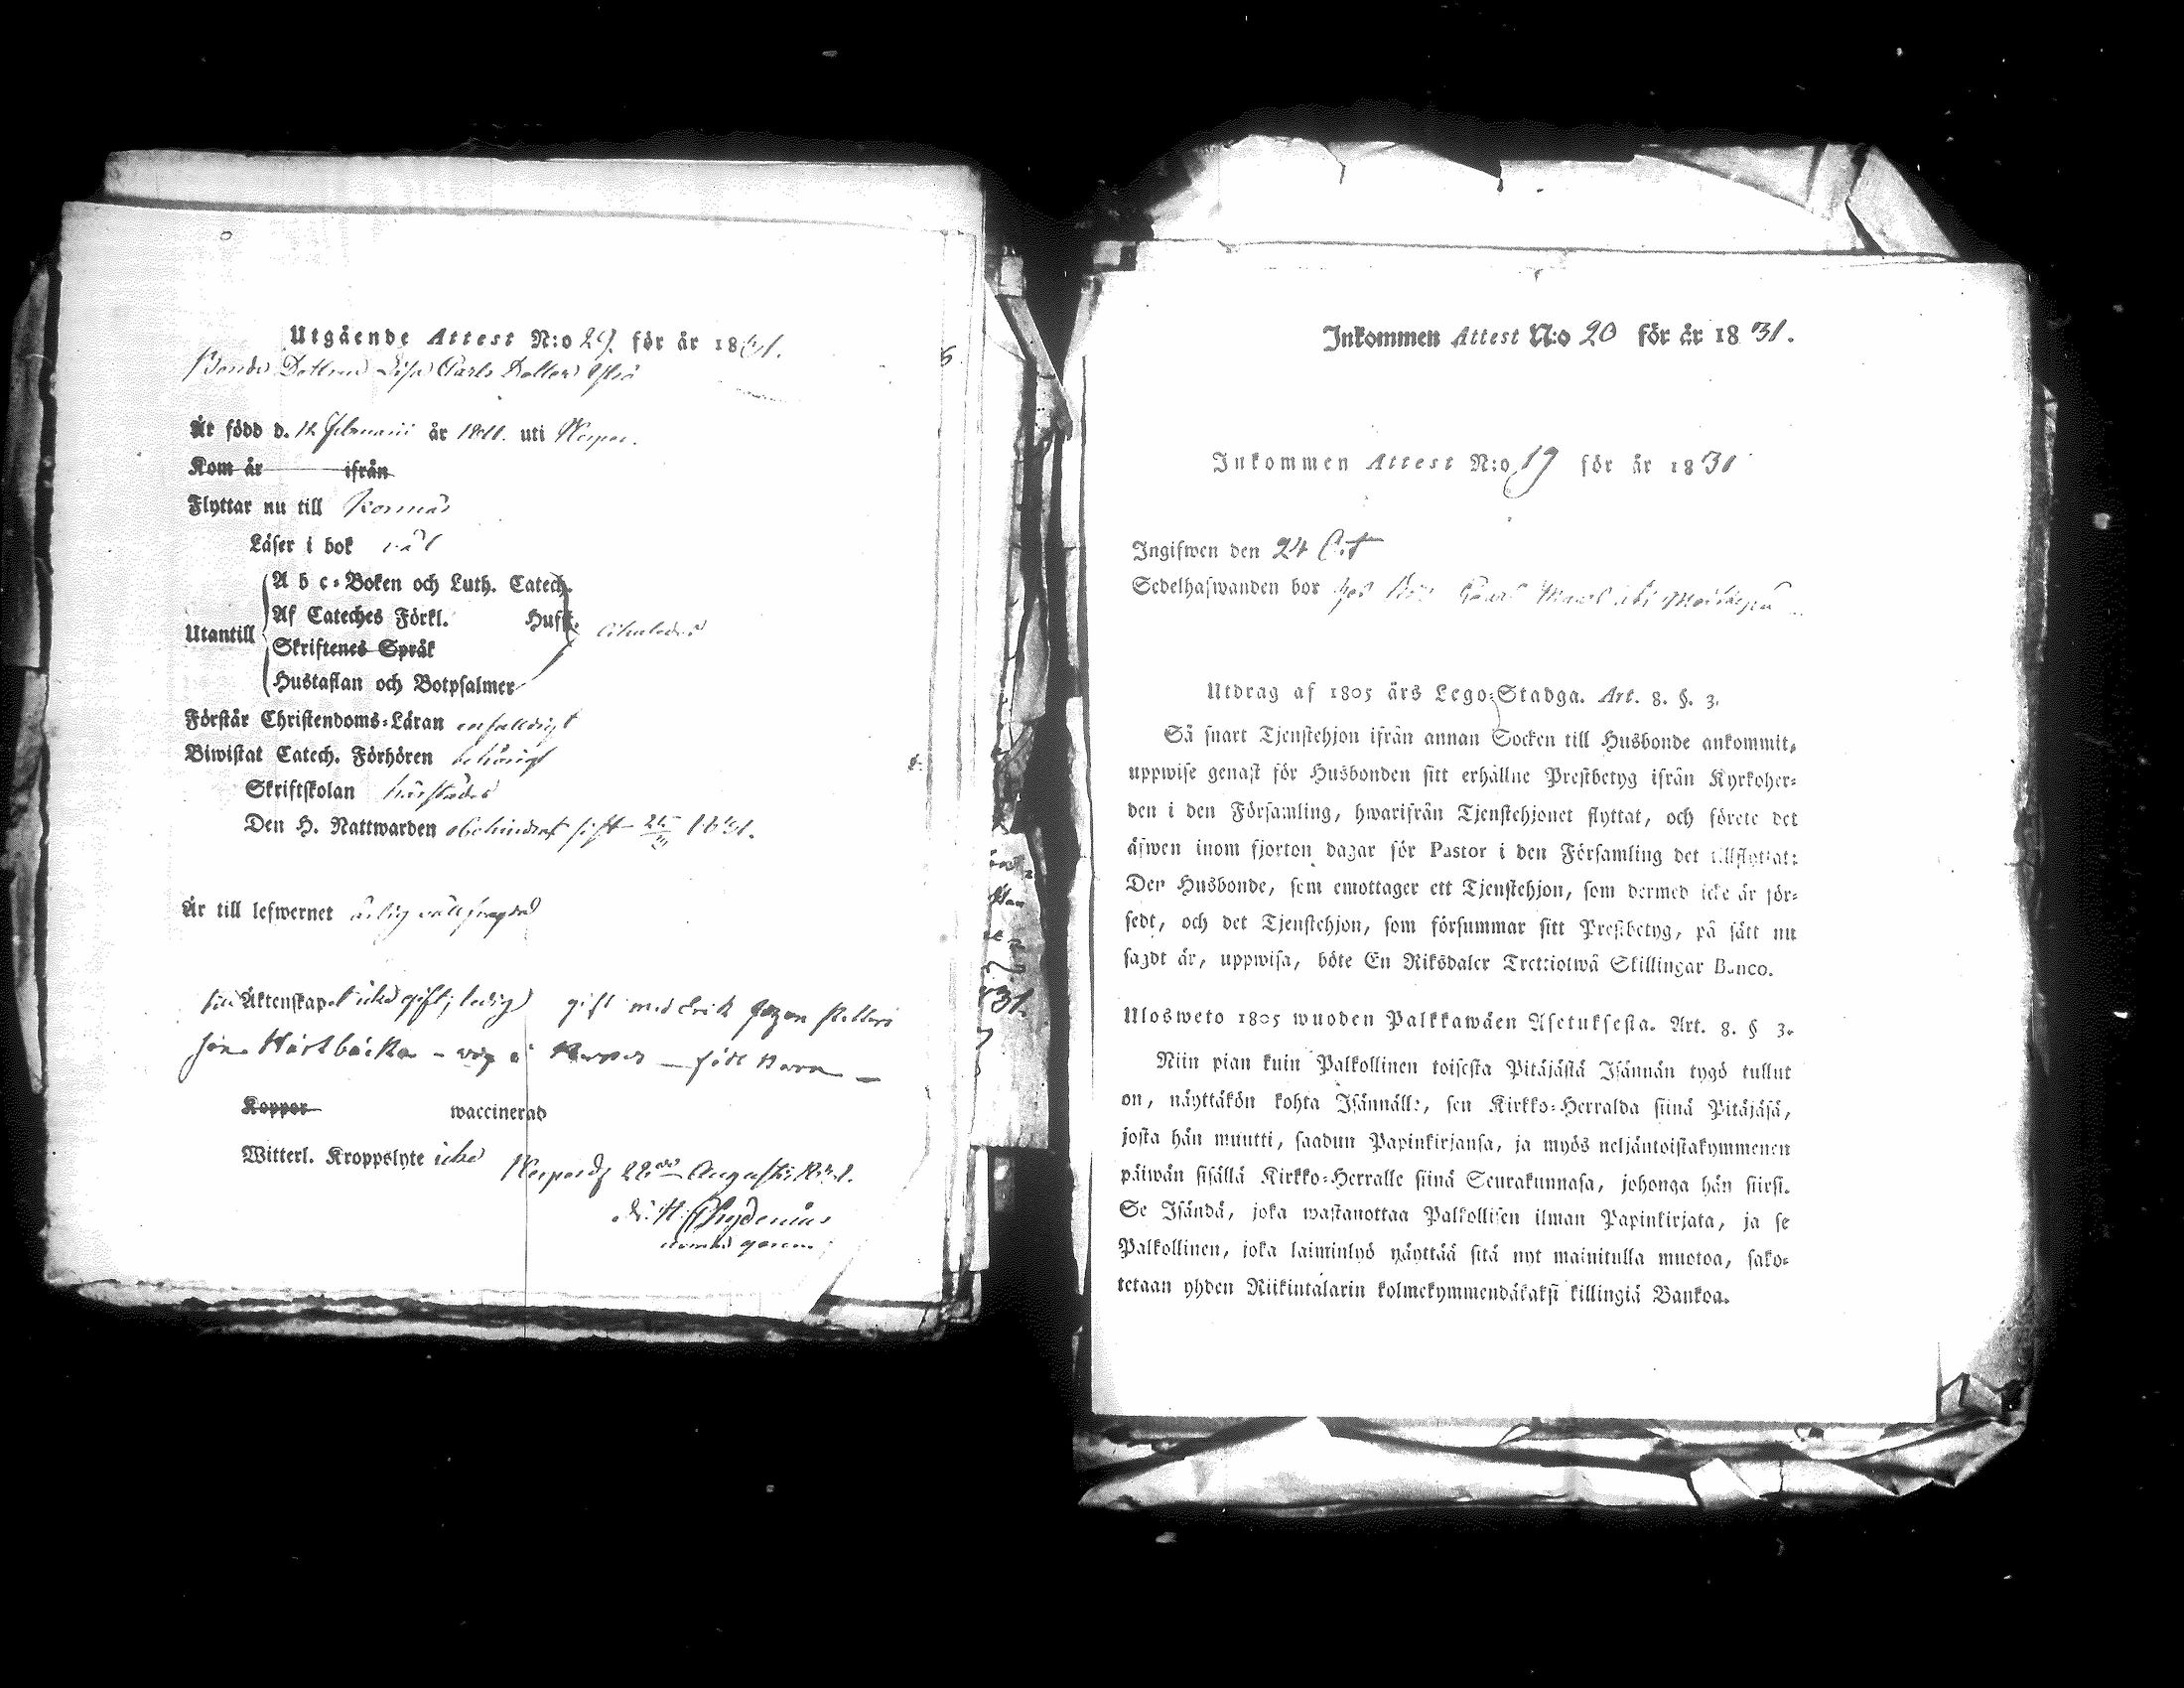 Utgående Attest N:o 29. för år 1831.
Bonde Dottren Lisa Carls Dotter
Är född d. 12 Februarii år 1811. uti
Kom år ifrån
Flyttar nu till
Läser i bok väl
A b c-Boken och Luth. Catech.
Af Cateches Förkl. Husf.
Utantill
Skriftenes Språk
Hustaflan och Botpsalmer
Förstår Christendoms-Läran enfaldigt
Biwistat Catech. Förhören behörigt
Skriftskolan härstädes
Den H. Nattwarden obehindrat sist 1831.
Är till lefwernet ärlig
till Äktenskapet icke gift; ledig gift med Erik
son
Koppor waccinerad
Witterl. Kroppslyte icke
22 Augusti 1831.
Chydenius
Inkommen Attest N:o 20 för år 1831.
Inkommen Attest N:o 19 för år 1831
Ingifwen den 24 Oct
Sedelhafwanden bor hos
Utdrag af 1805 års Lego-Stadga. Art. 8. §. 3.
Så snart Tjenstehjon ifrån annan Socken till Husbonde ankommit,
uppwise genast för Husbonden sitt erhållne Prestbetyg ifrån Kyrkoher-
den i den Församling, hwarifrån Tjenstehjonet flyttat, och förete det
äfwen inom fjorton dagar för Pastor i den Församling det tillflyttat:
Den Husbonde, som emottager ett Tjenstehjon, som dermed icke är för-
sedt, och det Tjenstehjon, som försummar sitt Prestbetyg, på sätt nu
sagdt är, uppwisa, böte En Riksdaler Trettiotwå Skillingar Banco.
Ulosweto 1805 wuoden Palkkawäen Asetuksesta. Art. 8. § 3.
Niin pian kuin Palkollinen toisesta Pitäjästä Isännän tygö tullut
on, näyttäkön kohta Isännälle, sen Kirkko-Herralda siinä Pitäjäsä,
josta hän muutti, saadun Papinkirjansa, ja myös neljäntoistakymmenen
päiwän sisällä Kirkko-Herralle siinä Seurakunnasa, johonga hän siirsi.
Se Isändä, joka wastanottaa Palkollisen ilman Papinkirjata, ja se
Palkollinen, joka laiminlyö näyttää sitä nyt mainitulla muotoa, sako-
tetaan yhden Riikintalarin kolmekymmendäkaksi killingiä Bankoa.